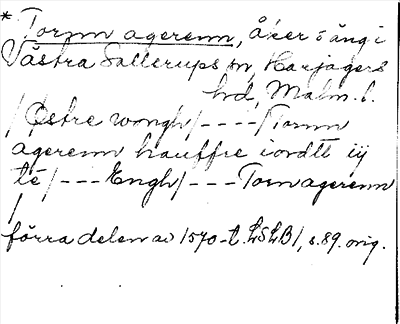 * Tornn agerenn, åker o äng i
Västra Sallerups sn, Harjagers
hd, Malm. l.
/Östre wongh/ - - - - /Tornn
agerenn hauffre iordtt iij
te/ - - - Engh/ - - - Tornagerenn
/
förra delen av 1570-t. LSLB/, s. 89. orig.